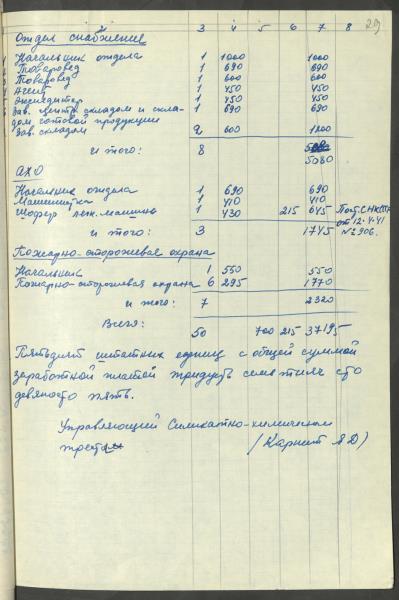 2 3 4 5 6 7 8 29
Отдел снабжение
Начальник отдела 1 1000 1000
Товаровед 1 690 690
Товаровед 1 600 600
Агент 1 450 450
Экспедитор 1 450 450
Зав. центр. складом и скла- 1 690 690
дом готовой продукции
Зав. складом 2 600 1200
и того: 8
5080
АХО
Начальник отдела 1 690 690
Машинистка 1 410 410
Шофер легк. машины 1 430 215 645 Пост. СНК
от 12.4.41
и того: 3 1745 № 906.
Пожарно-сторожевая охрана
Начальник 1 550 550
Пожарно-сторожевая охрана 6 295 1770
и того: 7 2320
Всего: 50 700 215 37195
Пятьдесят штатных единиц с общей суммой
заработной платой тридцать семь тысяч сто
девяносто пять.
Управляющий Силикатно-химическим
трестом (Карпит А Д)